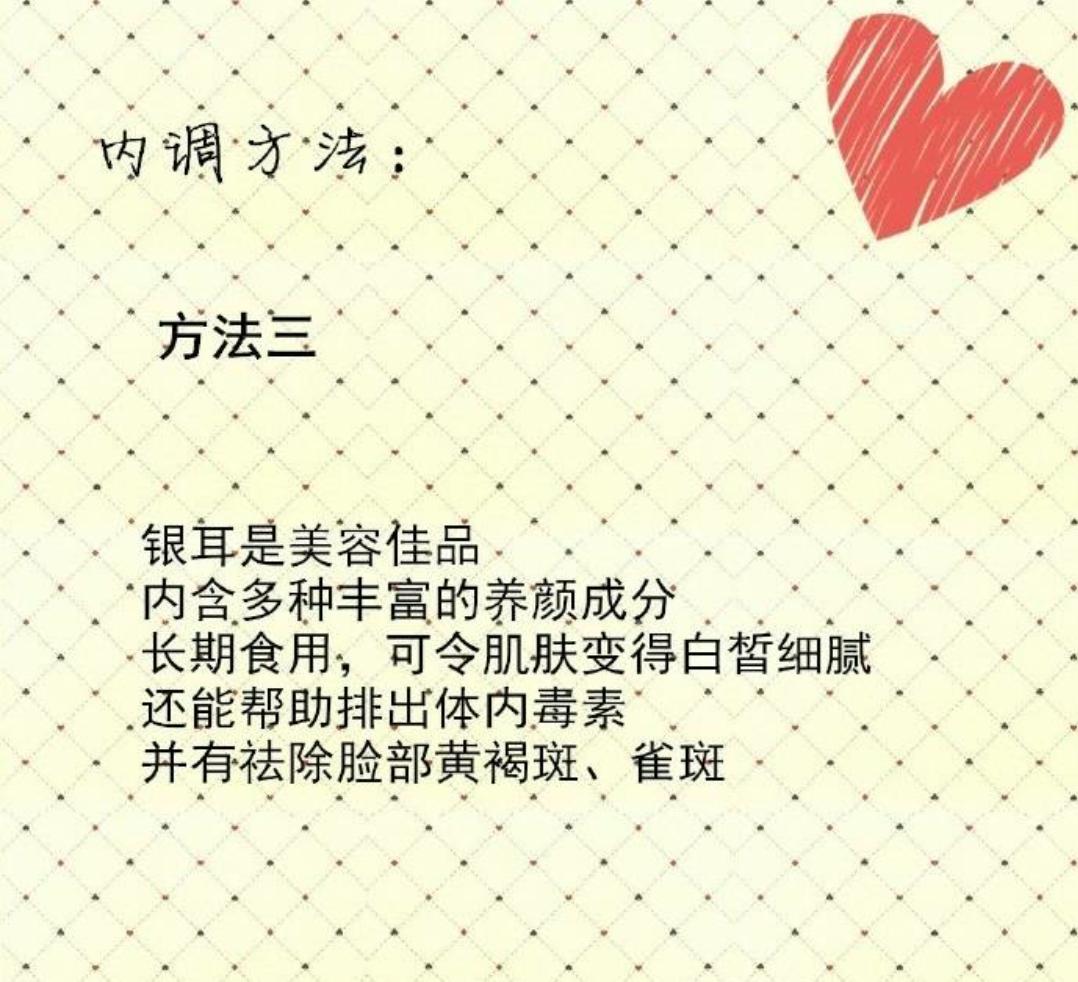 内调方法：
方法三
银耳是美容佳品
内含多种丰富的养颜成分
长期食用，可令肌肤变得白皙细腻
还能帮助排出体内毒素
并有祛除脸部黄褐斑、雀斑